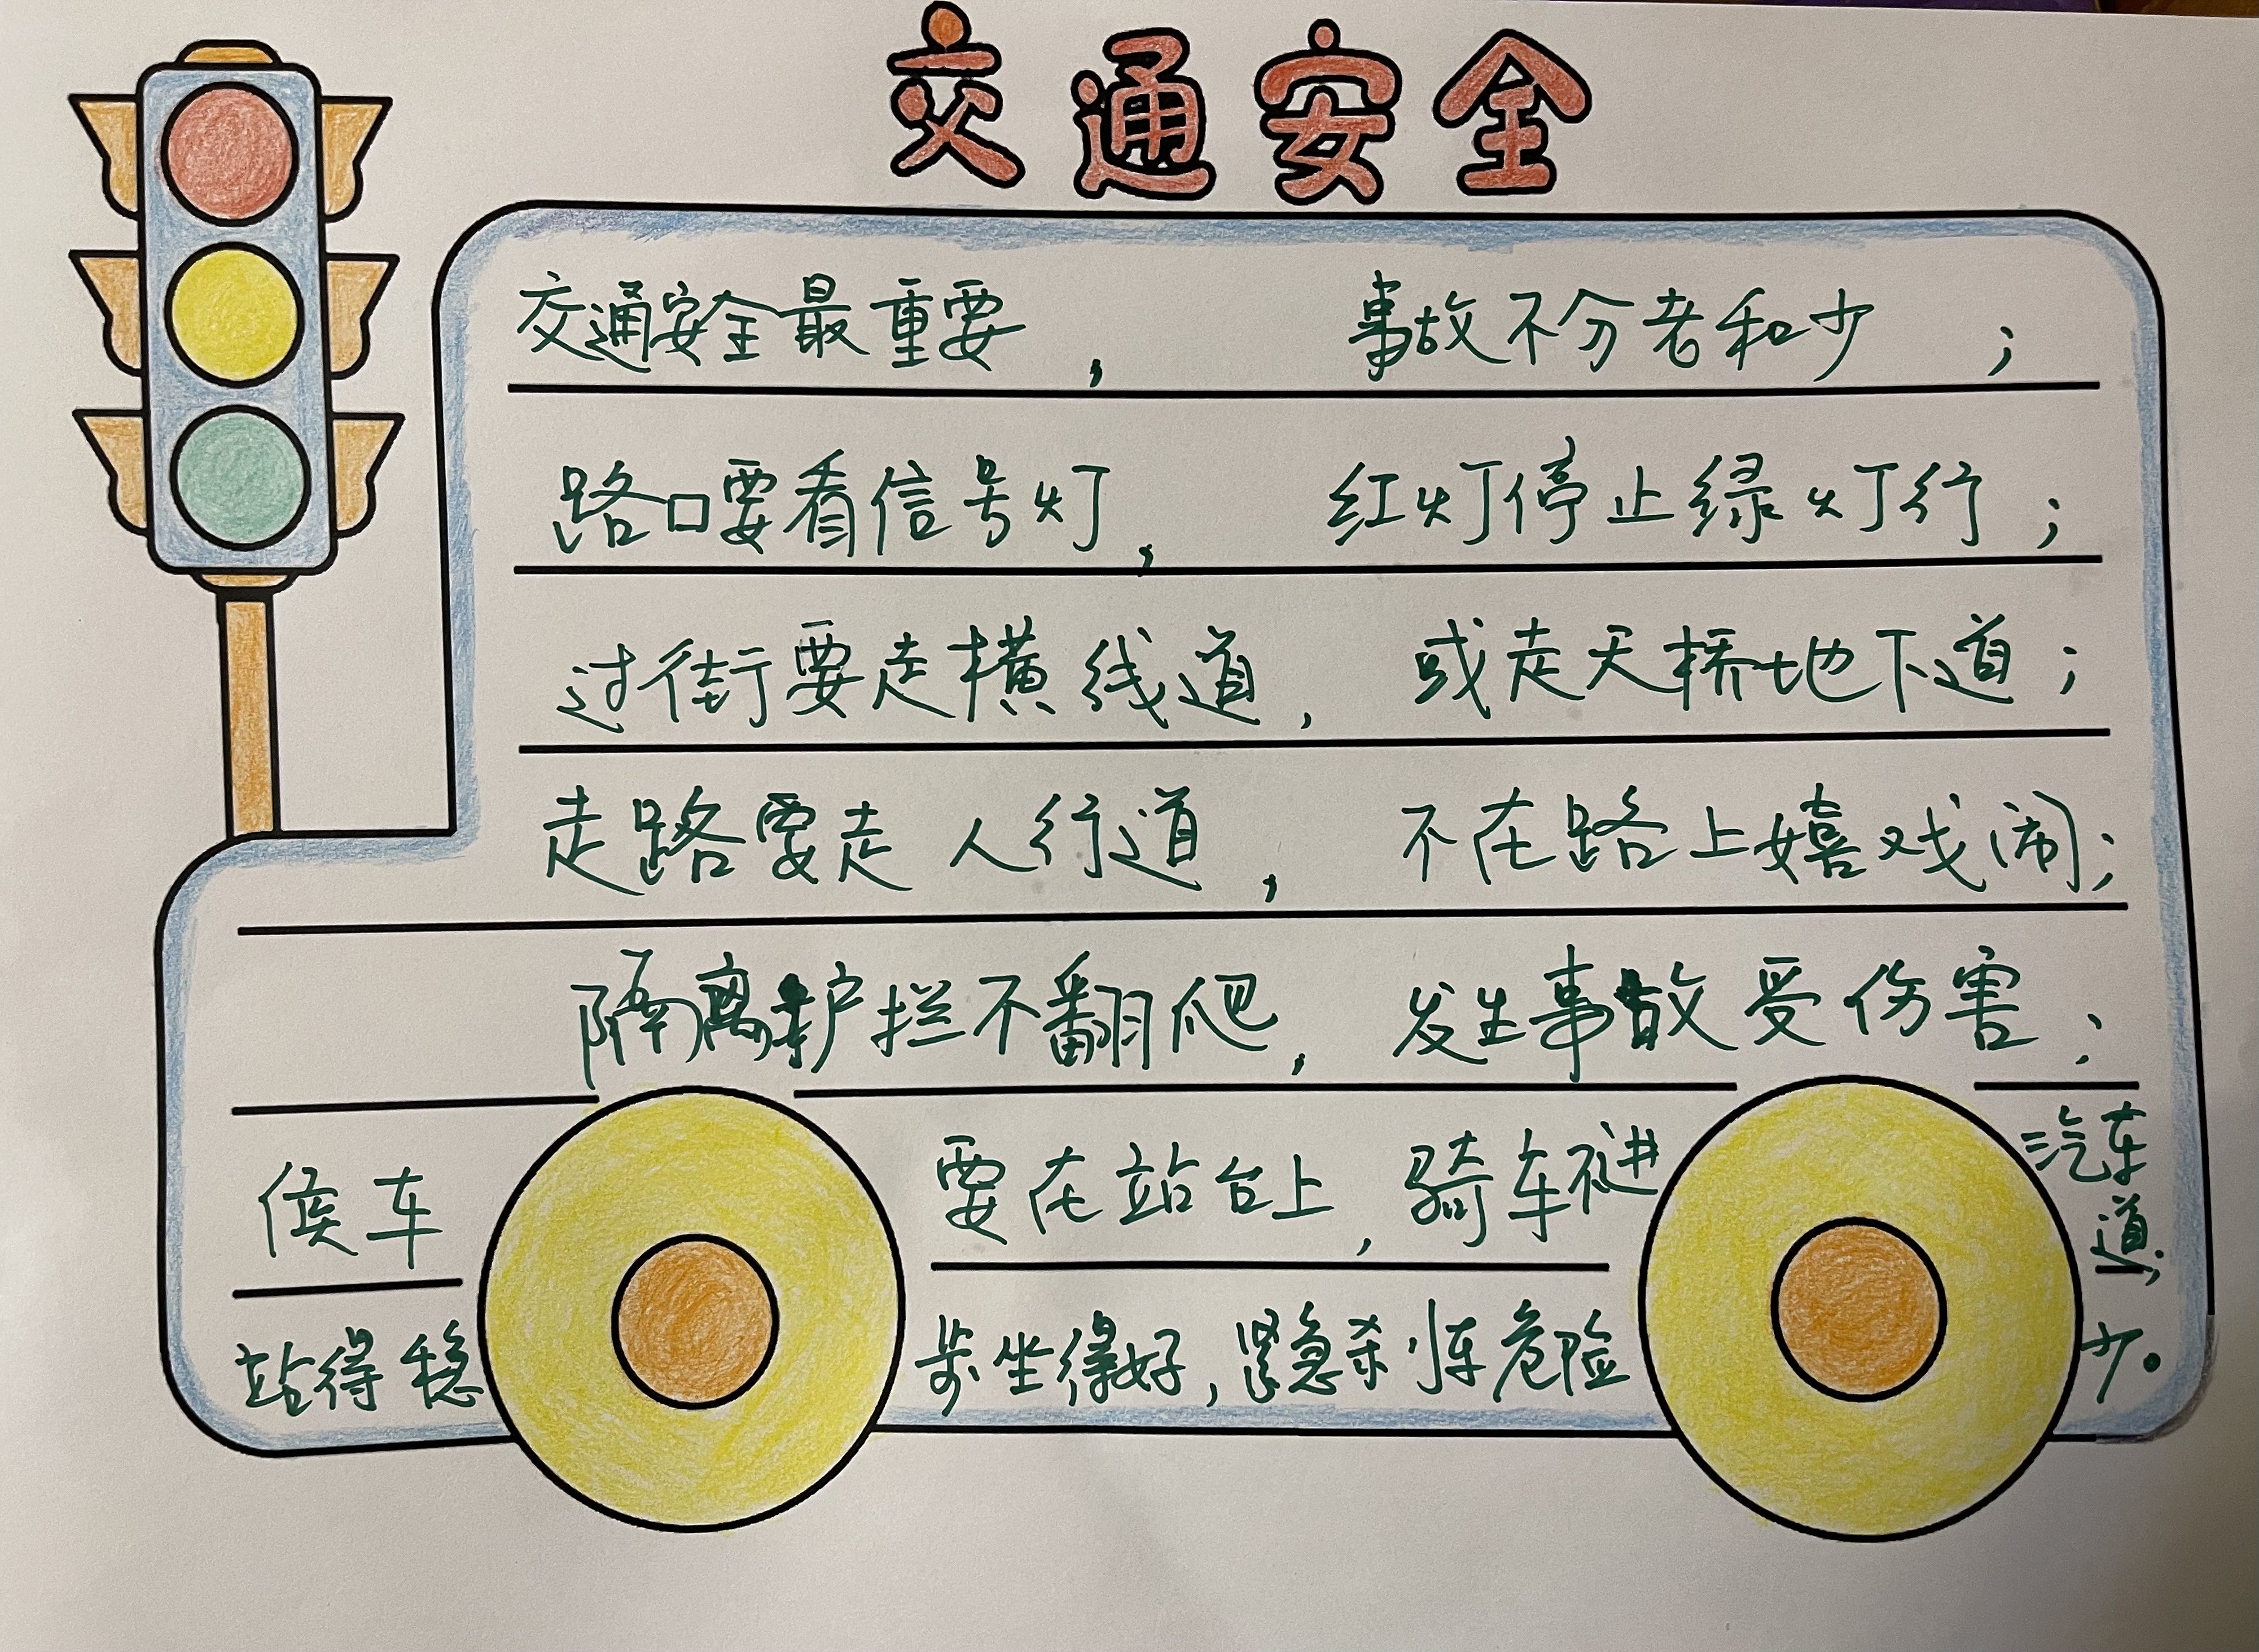 交通安全
交通安全最重要， 事故不分老和少；
路口要看信号灯， 红灯停止绿灯行；
过街要走横线道， 或走天桥地下道；
走路要走人行道， 不在路上嬉戏闹；
隔离护拦不翻爬， 发生事故受伤害；
候车 要在站台上，骑车不进 汽车
道；
站得稳 来坐得好，紧急杀车危险 少。